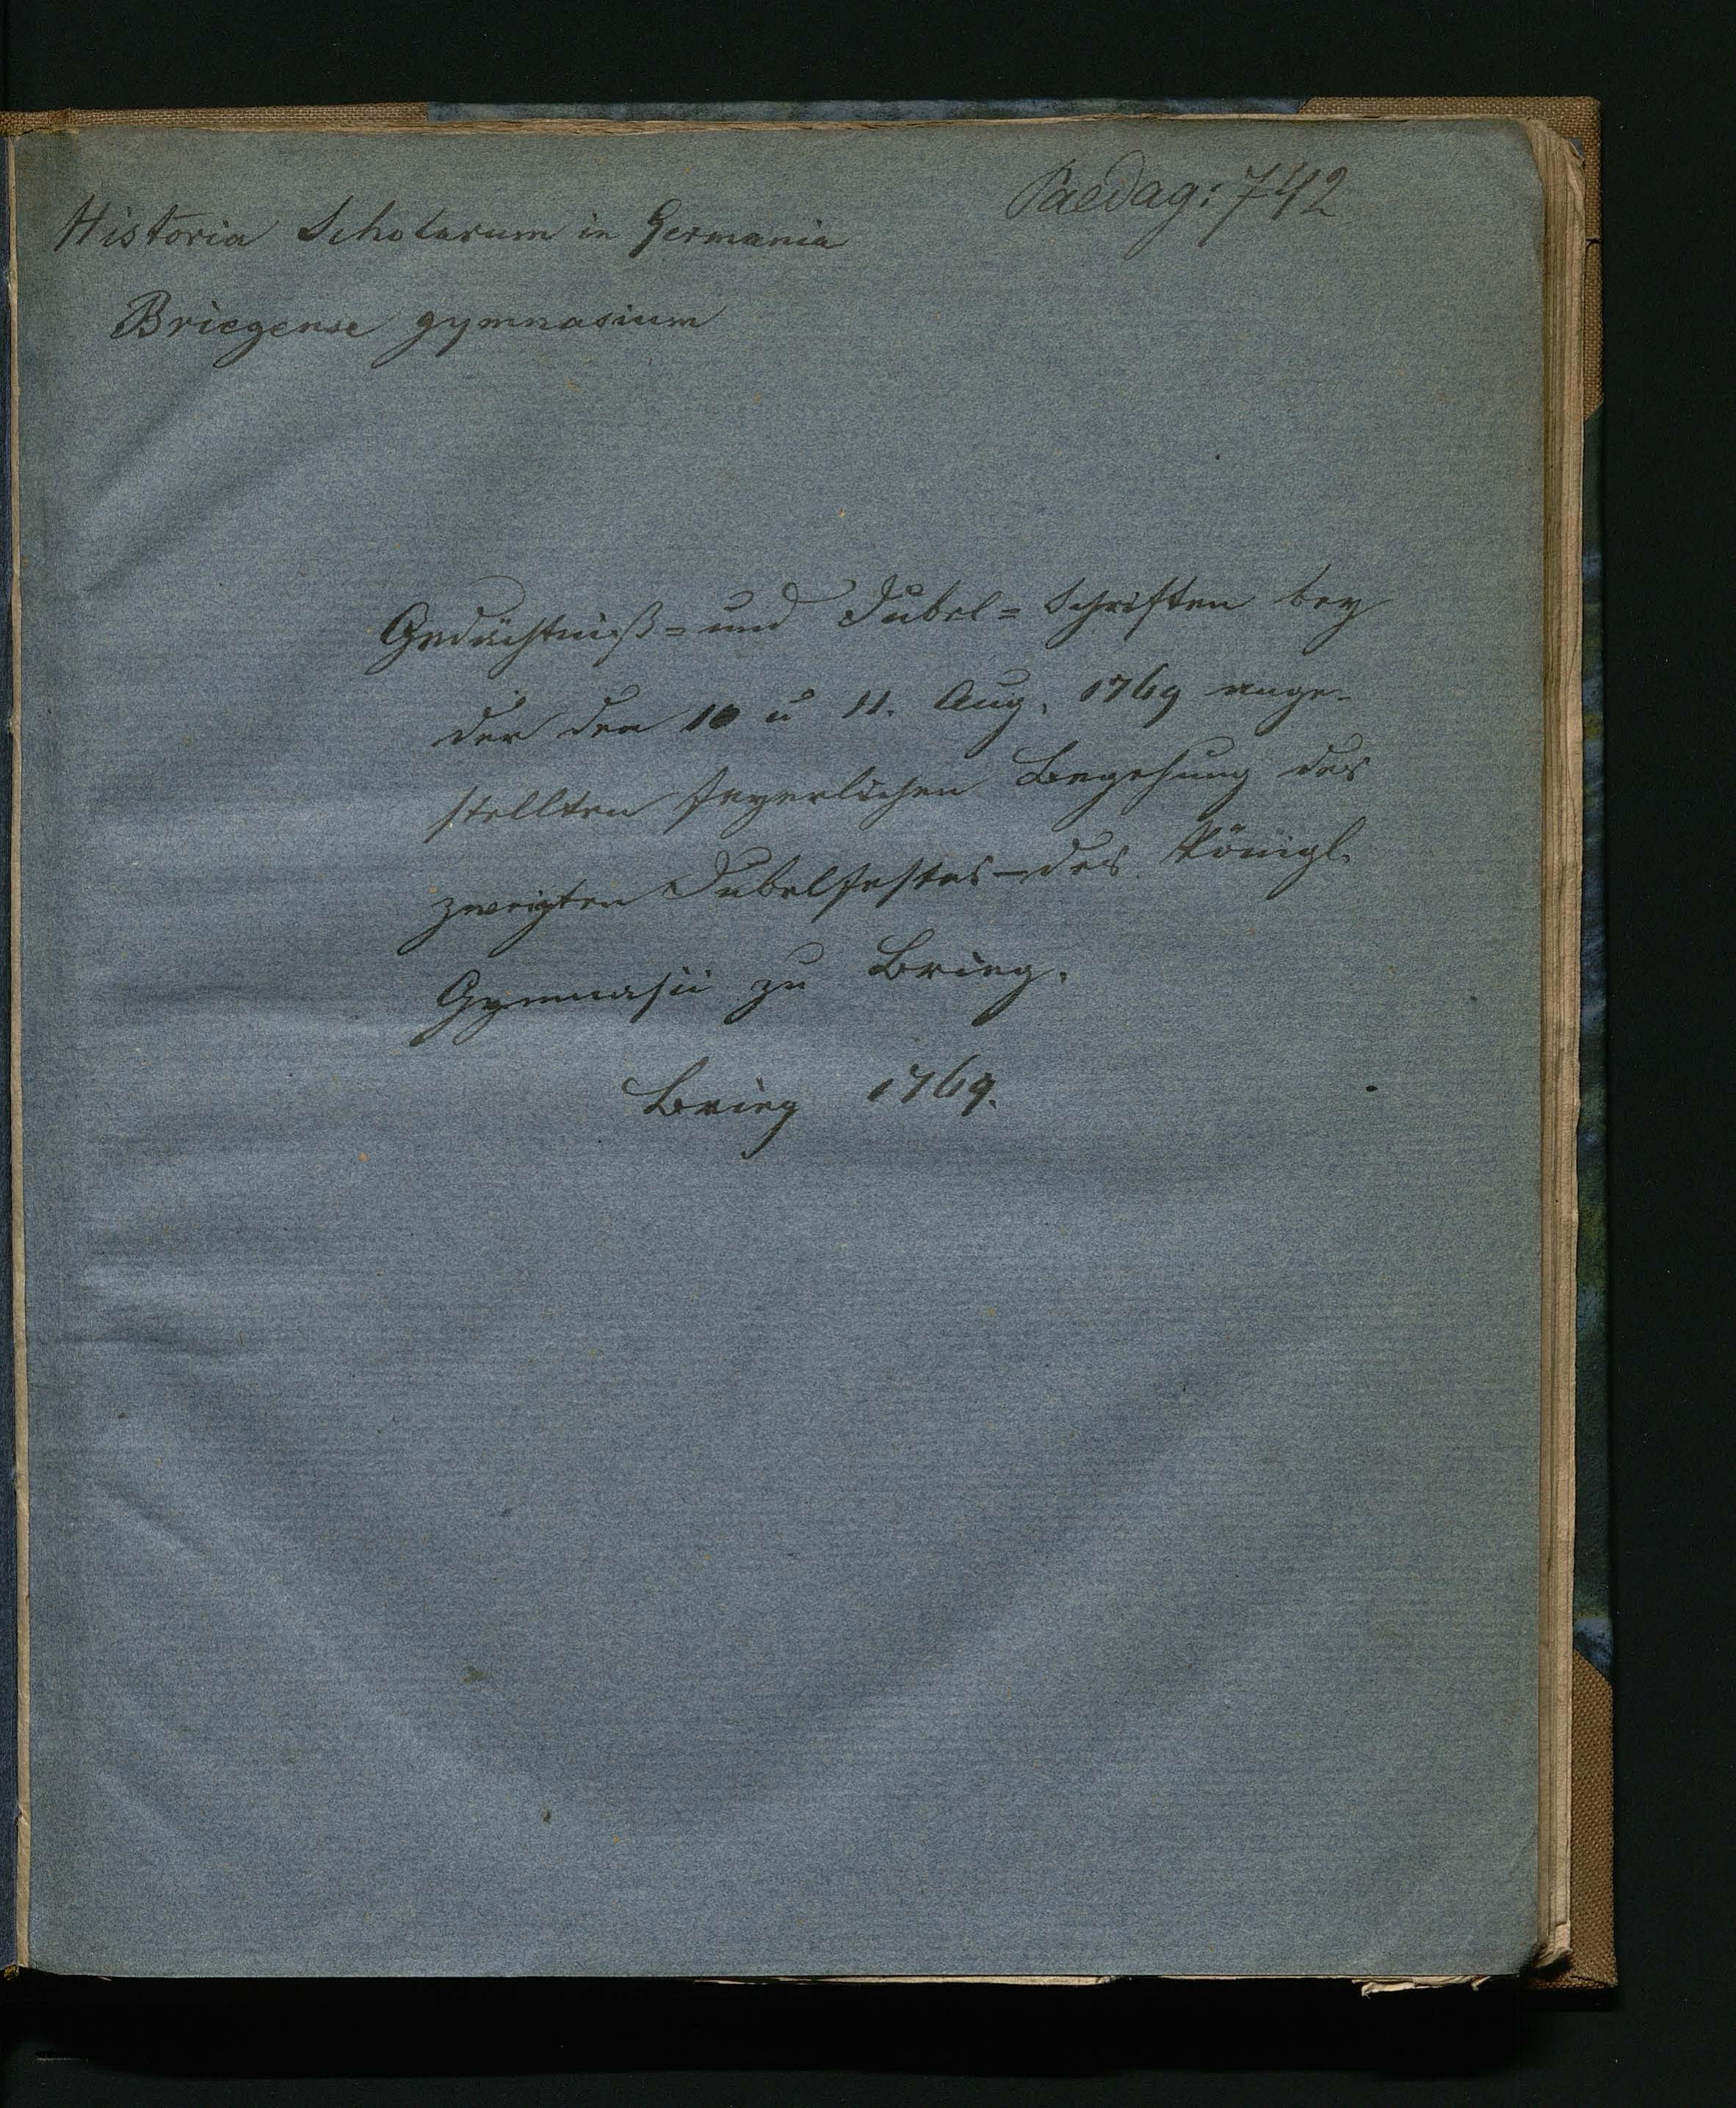 Paedag: 742
Historia Scholarum in Germania
Briegense gymnasium
Gedächtniß= und Jubel=Schriften bey
der den 10 u 11. Aug. 1769 ange-
stellten feyerlichen Begehung des
zweyten Jubelfestes des Königl.
Gymnasii zu Brieg.
Brieg 1769.